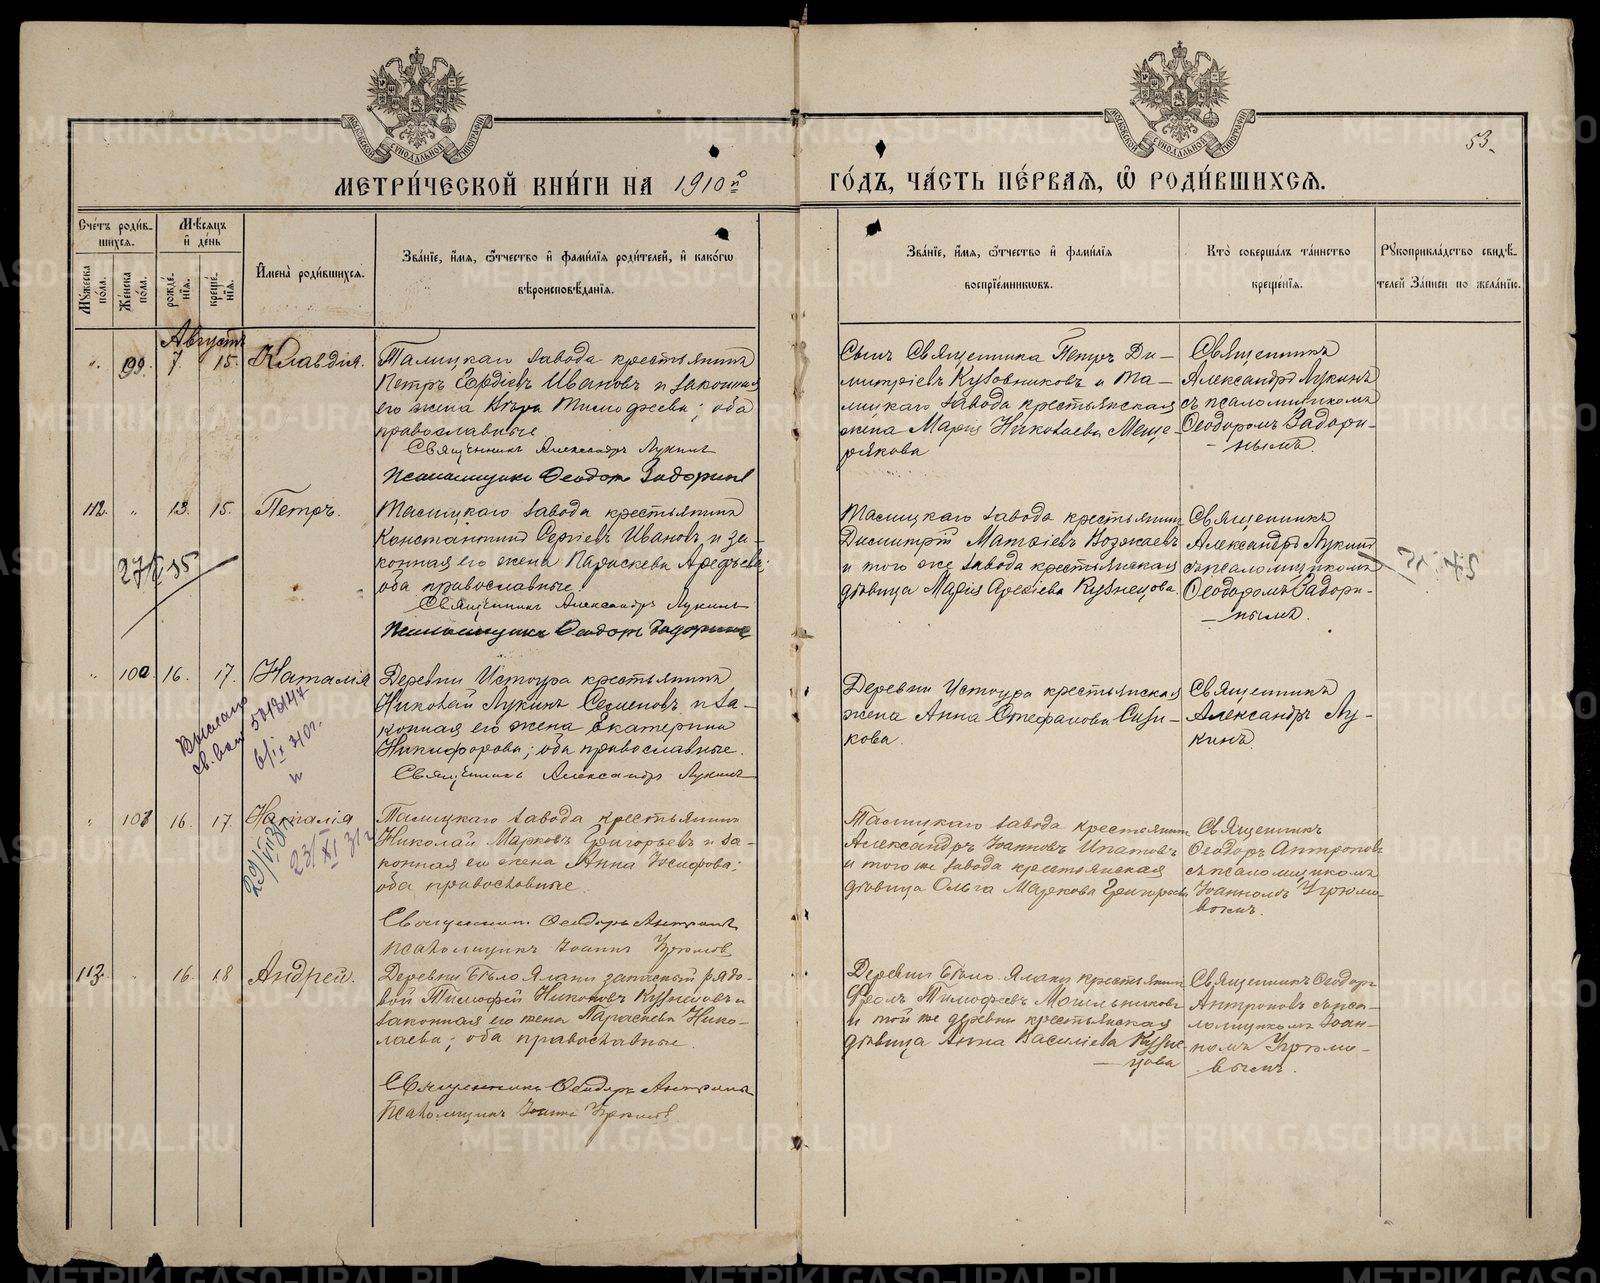 МЕТРИ́ЧЕСКОЙ КНИ́ГИ НА 1910 го
ГО́ДЪ, ЧА́СТЬ ПЕ́РВАЯ, Ѡ҆ РОДИ́ВШИХСЯ.
53.
Сче́тъ роди́в-
шихся.
Мѣ́сяцъ
и҆ де́нь
Мꙋ́жеска по́ла.
Же́нска по́ла.
рожде́нїя.
креще́нїя.
И҆мена̀ роди́вшихся.
Зва́нїе, и҆́мя, ѻ҆́тчество и҆ фами́лїя роди́телей, и҆ како́гѡ
вѣроисповѣ́данїя.
Зва́нїе, и҆́мя, ѻ҆́тчество и҆ фами́лїя
воспрїе́мниковъ.
Кто̀ соверша́лъ та́инство
креще́нїя.
Рꙋкоприкла́дство свидѣ́-
телей за́писи по жела́нїю.
Августъ
99. 7. 15. Клавдія.
Талицкаго завода крестьянинъ
Петръ Гордіевъ Ивановъ и законная
его жена Вѣра Тимофеева; оба
православные
Священникъ Александръ Лукинъ
Псаломщикъ Ѳеодоръ Задоринъ
Сынъ Священника Петръ Ди-
митріевъ Кузовниковъ и Та-
лицкаго завода крестьянская
жена Марія Николаева Меще-
рякова
Священникъ
Александръ Лукинъ
съ псаломщикомъ
Ѳеодоромъ Задори-
нымъ.
112. 13. 15. Петръ.
Талицкаго завода крестьянинъ
Константинъ Сергіевъ Ивановъ и за-
конная его жена Параскева Арефьева;
оба православные.
Священникъ Александръ Лукинъ
Псаломщикъ Ѳеодоръ Задоринъ
Талицкаго завода крестьянинъ
Димитрій Матѳіевъ Возжаевъ
и того же завода крестьянская
дѣвица Марія Кузнецова.
Священникъ
Александръ Лукинъ
съ псаломщикомъ
Ѳеодоромъ Задори-
нымъ.
100. 16. 17. Наталія
Деревни Истоура крестьянинъ
Николай Лукинъ Семеновъ и за-
конная его жена Екатерина
Никифорова; оба православные.
Священникъ Александръ Лукинъ
Деревни Истоура крестьянская
жена Анна Стефанова Сизи-
кова.
Священникъ
Александръ Лу-
кинъ.
101 16. 17. Наталія
23/XI 31г
Талицкаго завода крестьянинъ
Николай Марковъ Григорьевъ и за-
конная его жена Анна Іосифова;
оба православные.
Священникъ Ѳеодоръ Антроповъ
Псаломщикъ Іоаннъ Угрюмовъ
Талицкаго завода крестьянинъ
Александръ Іоанновъ Ипатовъ
и того же завода крестьянская
дѣвица Ольга Маркова Григорьева
Священникъ
Ѳеодоръ Антроповъ
съ псаломщикомъ
Іоанномъ Угрюмо-
вымъ.
113. 16. 18 Андрей.
Деревни Бѣло Ялани запасный рядо-
вой Тимофей Никоновъ Кузнецовъ и
законная его жена Параскева Нико-
лаева; оба православные.
Священникъ Ѳеодоръ Антроповъ
Псаломщикъ Іоаннъ Угрюмовъ
Деревни Бѣло Ялани крестьянинъ
Фролъ Тимофеевъ Могильниковъ
и той же деревни крестьянская
дѣвица Анна Василіева Кузне-
цова
Священникъ Ѳеодоръ
Антроповъ съ пса-
ломщикомъ Іоан-
номъ Угрюмо-
вымъ.